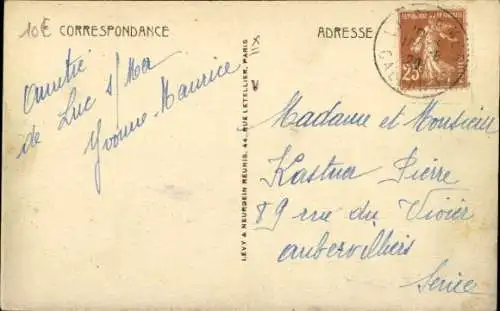 10€ CORRESPONDANCE
ADRESSE
Amitié
de Luc s/ Mer
Yvonne - Maurice
LÉVY & NEURDEIN RÉUNIS, 44, RUE LETELLIER, PARIS
25
Madame et Monsieur
Kastner Pierre
89 rue du Vivier
aubervilliers
Seine